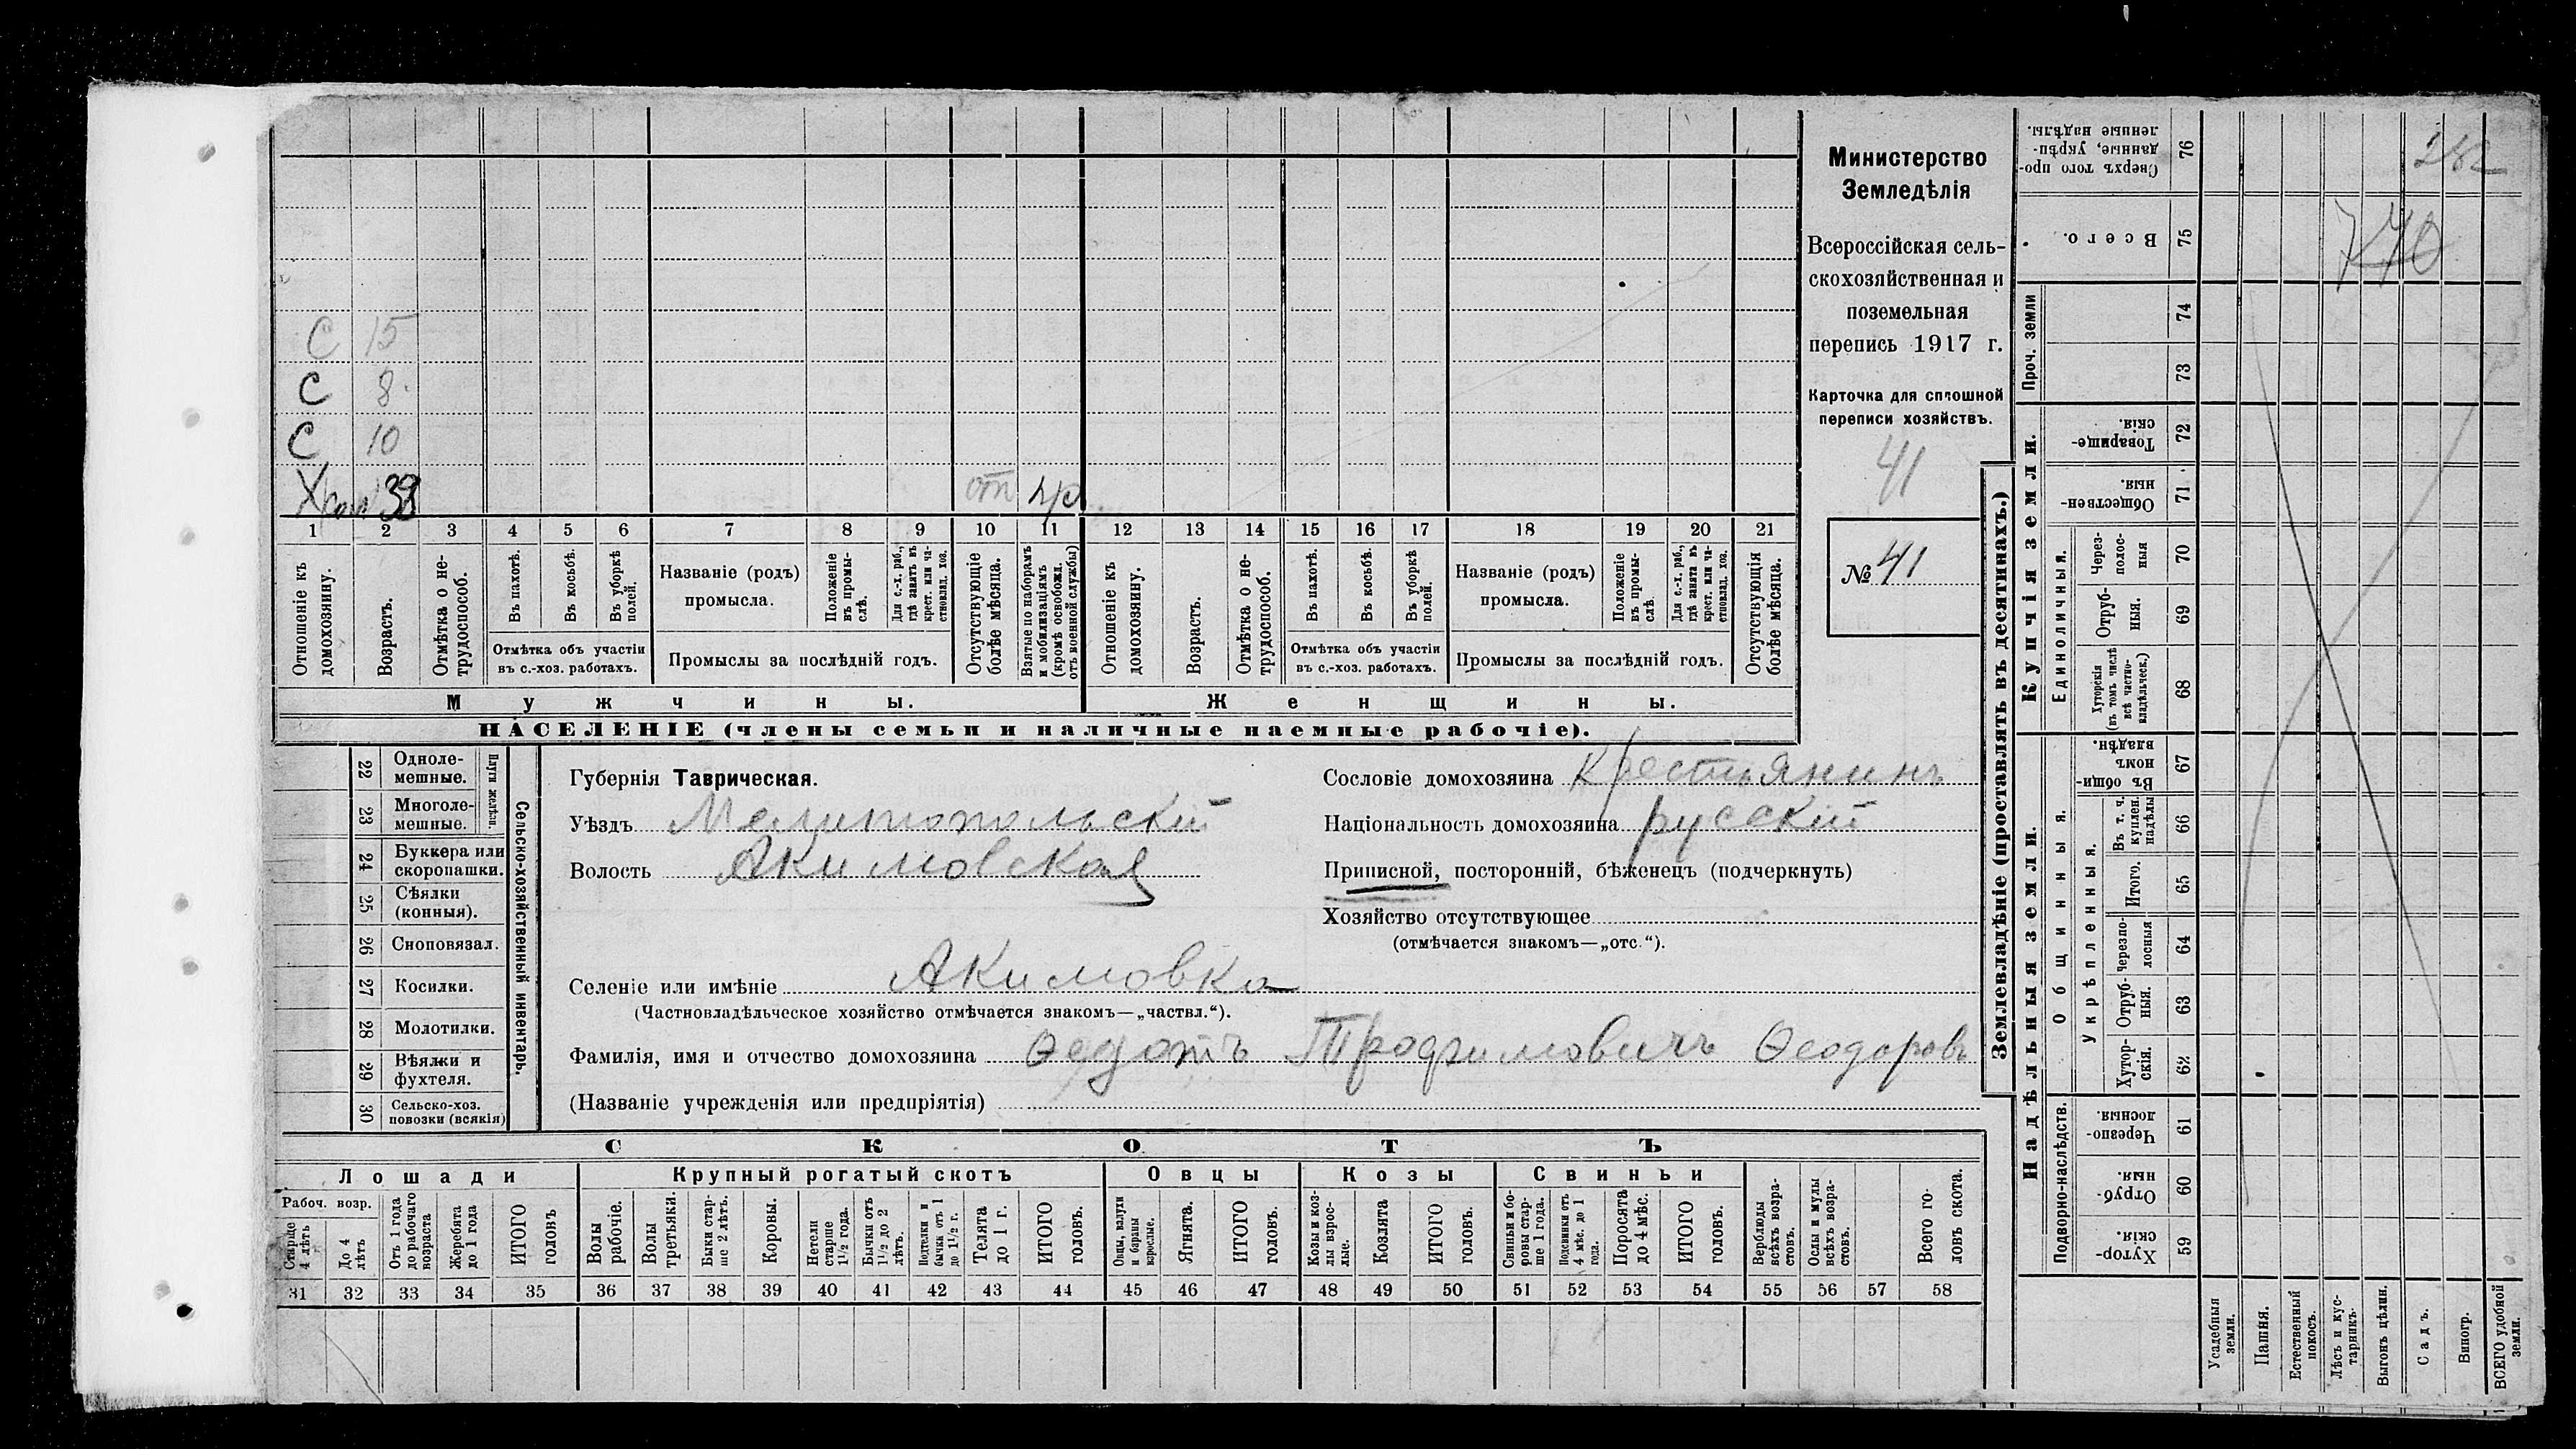 Министерство
Земледѣлія
Всероссійская сель-
скохозяйственная и
поземельная
перепись 1917 г.
Карточка для сплошной
переписи хозяйствъ.
41
№ 41
С 15
С 8
С 10
38 от
1 2 3 4 5 6 7 8 9 10 11 12 13 14 15 16 17 18 19 20 21
Отношеніе къ домохозяину.
Возрастъ.
Отмѣтка о не-трудоспособ.
Въ пахотѣ.
Въ косьбѣ.
Въ уборкѣ полей.
Отмѣтка объ участіи въ с.-хоз. работахъ.
Названіе (родъ) промысла.
Положеніе въ промы-слѣ.
Для с.-х. раб., гдѣ занятъ въ крест. или ча-стновлад. хоз.
Промыслы за послѣдній годъ.
Отсутствующіе болѣе мѣсяца.
Взятые по наборамъ и мобилизаціямъ (кромѣ освобожд. отъ военной службы)
Отношеніе къ домохозяину.
Возрастъ.
Отмѣтка о не-трудоспособ.
Въ пахотѣ.
Въ косьбѣ.
Въ уборкѣ полей.
Отмѣтка объ участіи въ с.-хоз. работахъ.
Названіе (родъ) промысла.
Положеніе въ промы-слѣ.
Для с.-х. раб., гдѣ занята въ крест. или ча-стновлад. хоз.
Промыслы за послѣдній годъ.
Отсутствующія болѣе мѣсяца.
Мужчины.
Женщины.
НАСЕЛЕНІЕ (члены семьи и наличные наемные рабочіе).
Сельско-хозяйственный инвентарь.
Плуги желѣзн.
22 Одноле-мешные.
23 Многоле-мешные.
24 Буккера или скоропашки.
25 Сѣялки (конныя).
26 Сноповязал.
27 Косилки.
28 Молотилки.
29 Вѣялки и фухтеля.
30 Сельско-хоз. повозки (всякія)
Губернія Таврическая.
Уѣздъ Мелитопольскій
Волость Акимовская
Селеніе или имѣніе Акимовка
(Частновладѣльческое хозяйство отмѣчается знакомъ—„частвл.“).
Фамилія, имя и отчество домохозяина Ѳедотъ Трофимовичъ Ѳеодоровъ
(Названіе учрежденія или предпріятія)
Сословіе домохозяина Крестьянинъ
Національность домохозяина русскій
Приписной, посторонній, бѣженецъ (подчеркнуть)
Хозяйство отсутствующее
(отмѣчается знакомъ—„отс.“).
СКОТЪ
Лошади
Крупный рогатый скотъ
Овцы
Козы
Свиньи
Рабоч. возр.
Старше 4 лѣтъ
До 4 лѣтъ
Отъ 1 года до рабочаго возраста
Жеребята до 1 года
ИТОГО головъ
Волы рабочіе.
Волы третьяки.
Быки стар-ше 2 лѣтъ.
Коровы.
Нетели старше 1½ года.
Бычки отъ 1½ до 2 лѣтъ.
Подтелки и бычки отъ 1 до 1½ г.
Телята до 1 г.
ИТОГО головъ.
Овцы, валухи и бараны взрослые.
Ягнята.
ИТОГО головъ.
Козы и коз-лы взрос-лые.
Козлята
ИТОГО головъ.
Свиньи и бо-ровы стар-ше 1 года.
Подсвинки отъ 4 мѣс. до 1 года.
Поросята до 4 мѣс.
ИТОГО головъ.
Верблюды всѣхъ возра-стовъ.
Ослы и мулы всѣхъ возра-стовъ.
Всего го-ловъ скота.
31 32 33 34 35 36 37 38 39 40 41 42 43 44 45 46 47 48 49 50 51 52 53 54 55 56 57 58
Землевладѣніе (проставлять въ десятинахъ.)
Купчія земли.
Надѣльныя земли.
76 Сверхъ того про-данные, укрѣп-ленные надѣлы. 282
75 Всего. 740
Проч. земли
74
73
72 Товарище-скія.
71 Обществен-ныя.
Единоличныя.
70 Через-полос-ныя
69 Отруб-ныя.
68 Хуторскія (въ томъ числѣ всѣ частно-владѣльческ.)
Общинныя.
67 Въ общи-номъ владѣн.
Укрѣпленныя.
66 Въ т. ч. куплен. надѣлы
65 Итого.
64 Черезпо-лосныя
63 Отруб-ныя.
62 Хутор-скія.
Подворно-наслѣдств.
61 Черезпо-лосныя.
60 Отруб-ныя.
59 Хутор-скія.
Усадебныя земли.
Пашня.
Естественный покосъ.
Лѣсъ и кус-тарникъ.
Выгонъ цѣлин.
Садъ.
Виногр.
ВСЕГО удобной земли.